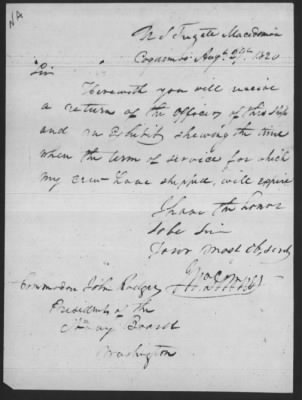 NA
U S Frigate Macedonian
Coquimbo Augt 27th 1820
Sir
Herewith you will receive
a return of the Officers of this Ship
and an Exhibit shewing the time
when the term of service for which
my crew have shipped, will expire
I have the honor
to be Sir
Your most Ob. Servt
Commodore John Rodgers
President of the
Navy Board
Washington